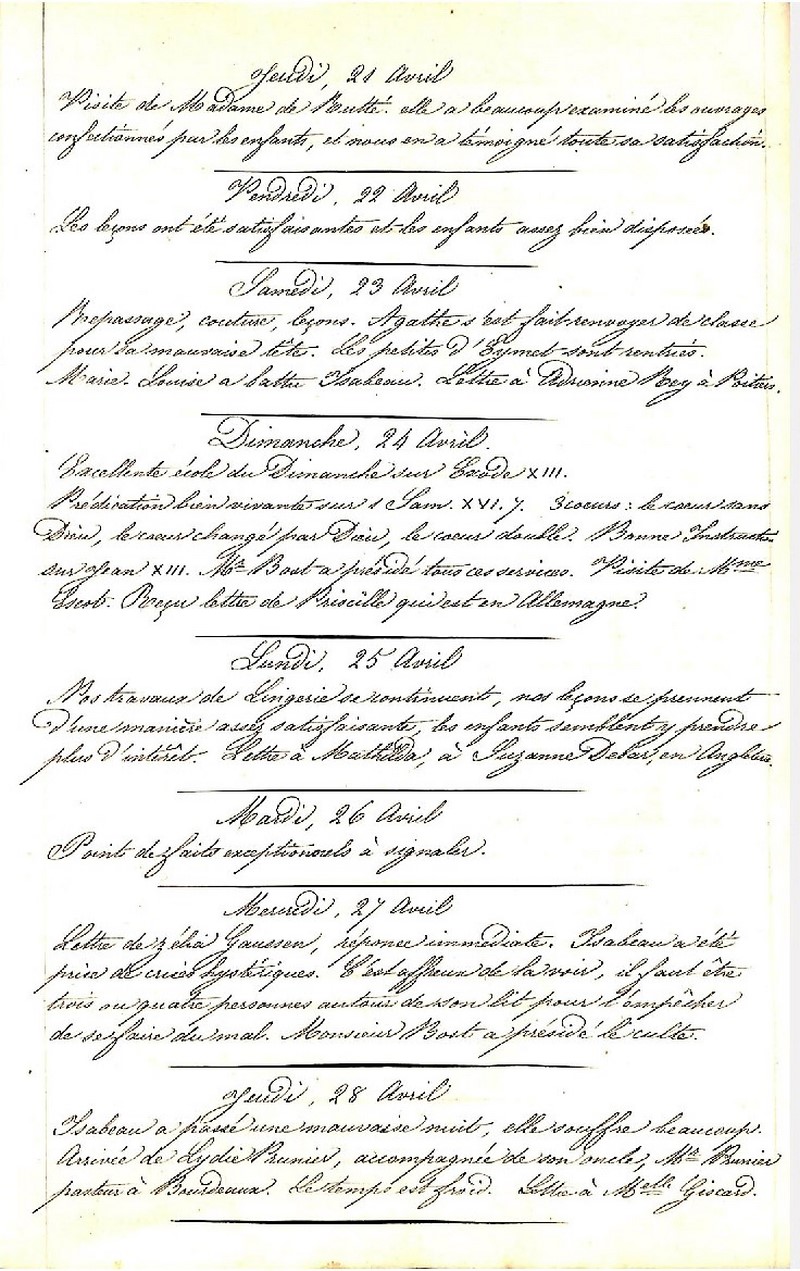 Jeudi, 21 Avril
Visite de Madame de Rutté. elle a beaucoup examiné les ouvrages
confectionnés par les enfants, et nous en a témoigné toute sa satisfaction.
Vendredi, 22 Avril
Les leçons ont été satisfaisantes et les enfants assez bien disposées.
Samedi, 23 Avril
Repassage, couture, leçons. Agathe s'est fait renvoyer de classe
pour sa mauvaise tête. Les petites d'Eymet sont rentrées.
Marie-Louise a battu Isabeau. Lettre à Adrienne Rey à Poitiers.
Dimanche, 24 Avril.
Excellente école du Dimanche sur Exode XIII.
Prédication bien vivante sur 1 Sam. XVI. 7. 3 coeurs: le coeur sans
Dieu, le coeur changé par Dieu, le coeur double. Bonne Instruction
sur Jean XIII. Mr Bost a présidé tous ces services. Visite de Mme
Escot. Reçu lettre de Priscille qui est en Allemagne.
Lundi, 25 Avril
Nos travaux de Lingerie se continuent, nos leçons se prennent
d'une manière assez satisfaisante, les enfants semblent y prendre
plus d'intérêt. Lettre à Mathilda, à Suzanne Debar, en Angleterre.
Mardi, 26 Avril
Point de faits exceptionnels à signaler.
Mercredi, 27 Avril
Lettre de Zélia Gaussen, réponse immédiate. Isabeau a été
prise de crises hystériques. C'est affreux de la voir, il faut être
trois ou quatre personnes autour de son lit pour l'empêcher
de se faire du mal. Monsieur Bost a présidé le culte.
Jeudi, 28 Avril
Isabeau a passé une mauvaise nuit, elle souffre beaucoup.
Arrivée de Lydie Prunier, accompagnée de son oncle, Mr Prunier
pasteur à Bourdeaux. Le temps est froid. Lettre à Melle Giscard.